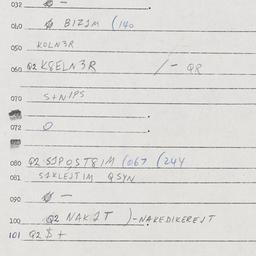 032 Ø —
040 Ø BIZIM (140
050 KOLN3R
060 Q2 K8ELN3R /- QR
070 S+NIPS
072 O
080 Q2 S1POST8IM (067 (244
081 S1KLEJTIM QSYN
090 Ø —
100 Q2 NAKIT )-NAKEDIKEREJT
101 Q2 $ +